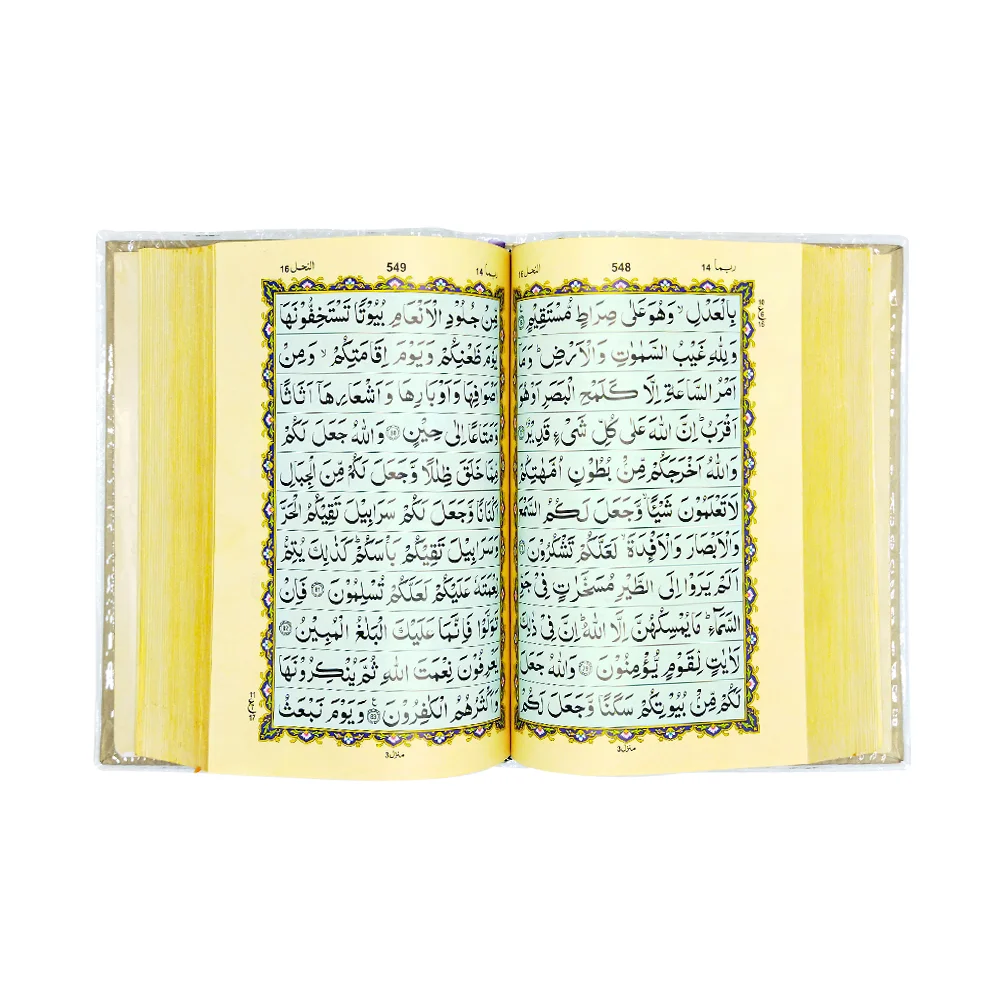 ربما 14 548 النحل 16
بِالْعَدْلِ ۙ وَهُوَ عَلٰى صِرَاطٍ مُّسْتَقِيْمٍ
وَلِلّٰهِ غَيْبُ السَّمٰوٰتِ وَالْاَرْضِ ؕ وَمَاۤ
اَمْرُ السَّاعَةِ اِلَّا كَلَمْحِ الْبَصَرِ اَوْ هُوَ
اَقْرَبُ ؕ اِنَّ اللّٰهَ عَلٰى كُلِّ شَىْءٍ قَدِيْرٌ
وَاللّٰهُ اَخْرَجَكُمْ مِّنْۢ بُطُوْنِ اُمَّهٰتِكُمْ
لَا تَعْلَمُوْنَ شَيْـًٔا ۙ وَّجَعَلَ لَكُمُ السَّمْعَ
وَالْاَبْصَارَ وَالْاَفْـِٕدَةَ ۙ لَعَلَّكُمْ تَشْكُرُوْنَ
اَلَمْ يَرَوْا اِلَى الطَّيْرِ مُسَخَّرٰتٍ فِىْ جَوِّ
السَّمَآءِ ؕ مَا يُمْسِكُهُنَّ اِلَّا اللّٰهُ ؕ اِنَّ فِىْ ذٰلِكَ
لَاٰيٰتٍ لِّقَوْمٍ يُّؤْمِنُوْنَ ۷۹ وَاللّٰهُ جَعَلَ
لَكُمْ مِّنْۢ بُيُوْتِكُمْ سَكَنًا وَّجَعَلَ لَكُمْ
منزل 3
ربما 14 549 النحل 16
مِّنْ جُلُوْدِ الْاَنْعَامِ بُيُوْتًا تَسْتَخِفُّوْنَهَا
يَوْمَ ظَعْنِكُمْ وَيَوْمَ اِقَامَتِكُمْ ۙ وَمِنْ
اَصْوَافِهَا وَاَوْبَارِهَا وَاَشْعَارِهَاۤ اَثَاثًا
وَّمَتَاعًا اِلٰى حِيْنٍ ۸۰ وَاللّٰهُ جَعَلَ لَكُمْ
مِّمَّا خَلَقَ ظِلٰلًا وَّجَعَلَ لَكُمْ مِّنَ الْجِبَالِ
اَكْنَانًا وَّجَعَلَ لَكُمْ سَرَابِيْلَ تَقِيْكُمُ الْحَرَّ
وَسَرَابِيْلَ تَقِيْكُمْ بَاْسَكُمْ ؕ كَذٰلِكَ يُتِمُّ
نِعْمَتَهٗ عَلَيْكُمْ لَعَلَّكُمْ تُسْلِمُوْنَ ۸۱ فَاِنْ
تَوَلَّوْا فَاِنَّمَا عَلَيْكَ الْبَلٰغُ الْمُبِيْنُ ۸۲
يَعْرِفُوْنَ نِعْمَتَ اللّٰهِ ثُمَّ يُنْكِرُوْنَهَا
وَاَكْثَرُهُمُ الْكٰفِرُوْنَ ۸۳ وَيَوْمَ نَبْعَثُ
منزل 3